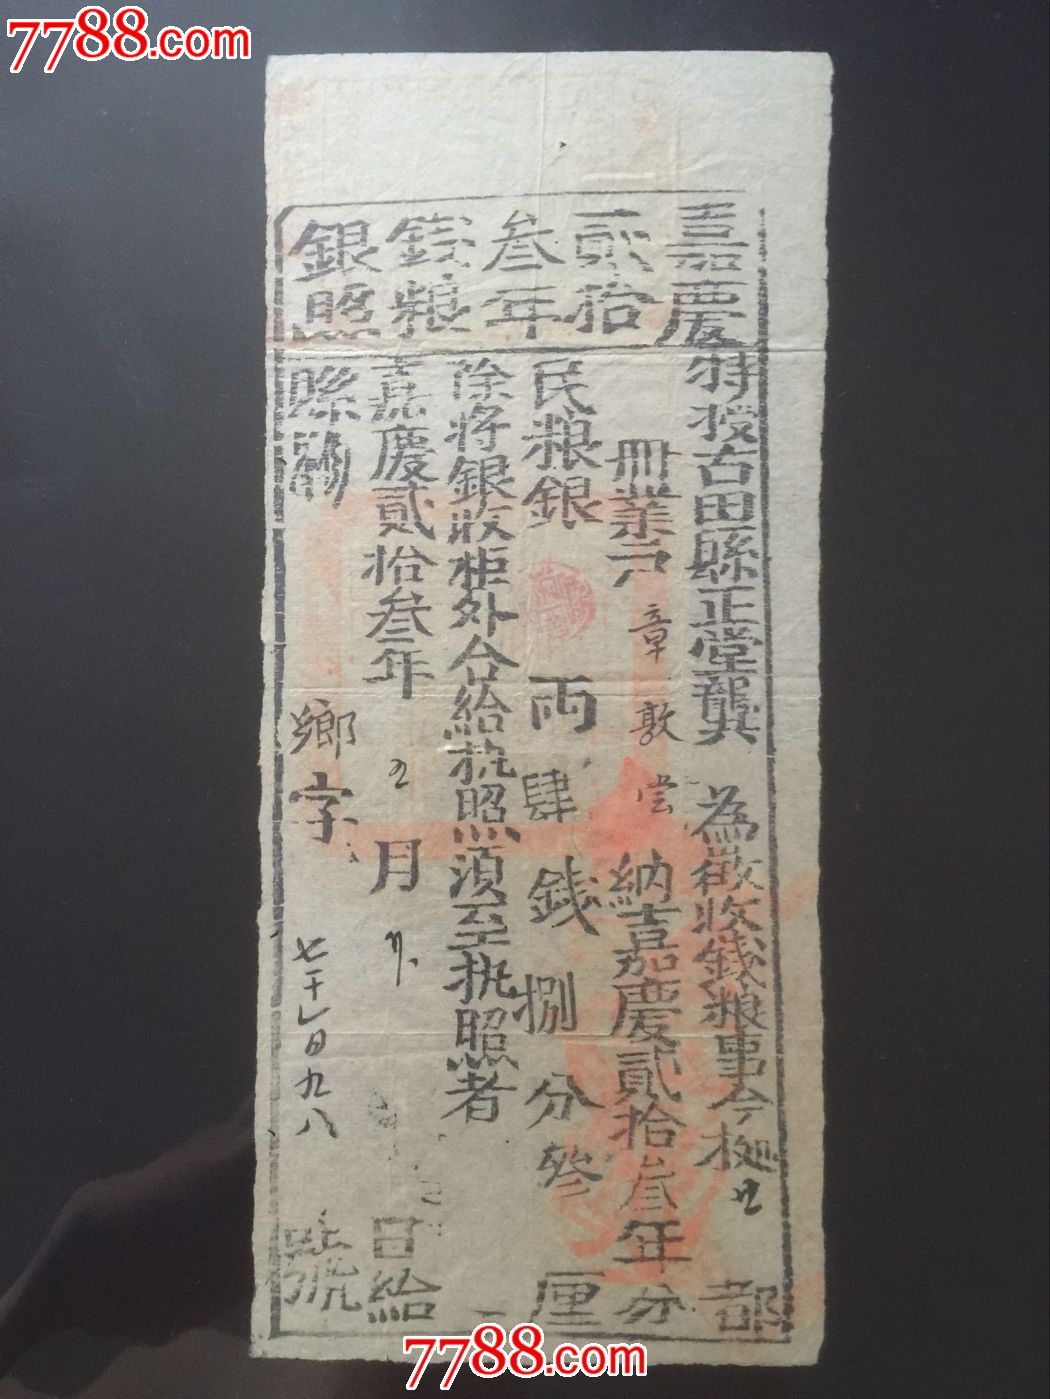 7788.com
嘉慶
貳拾
叁年
錢粮
銀照
特授古田縣正堂龔 為啟收錢粮事今拠廿 都
冊業户 章敦 納嘉慶貳拾叁年分
民粮銀 兩肆錢捌分叁厘
除将銀收柜外合給执照須至执照者
嘉慶貳拾叁年 五月 日給
縣 鄉字 號
7788.com